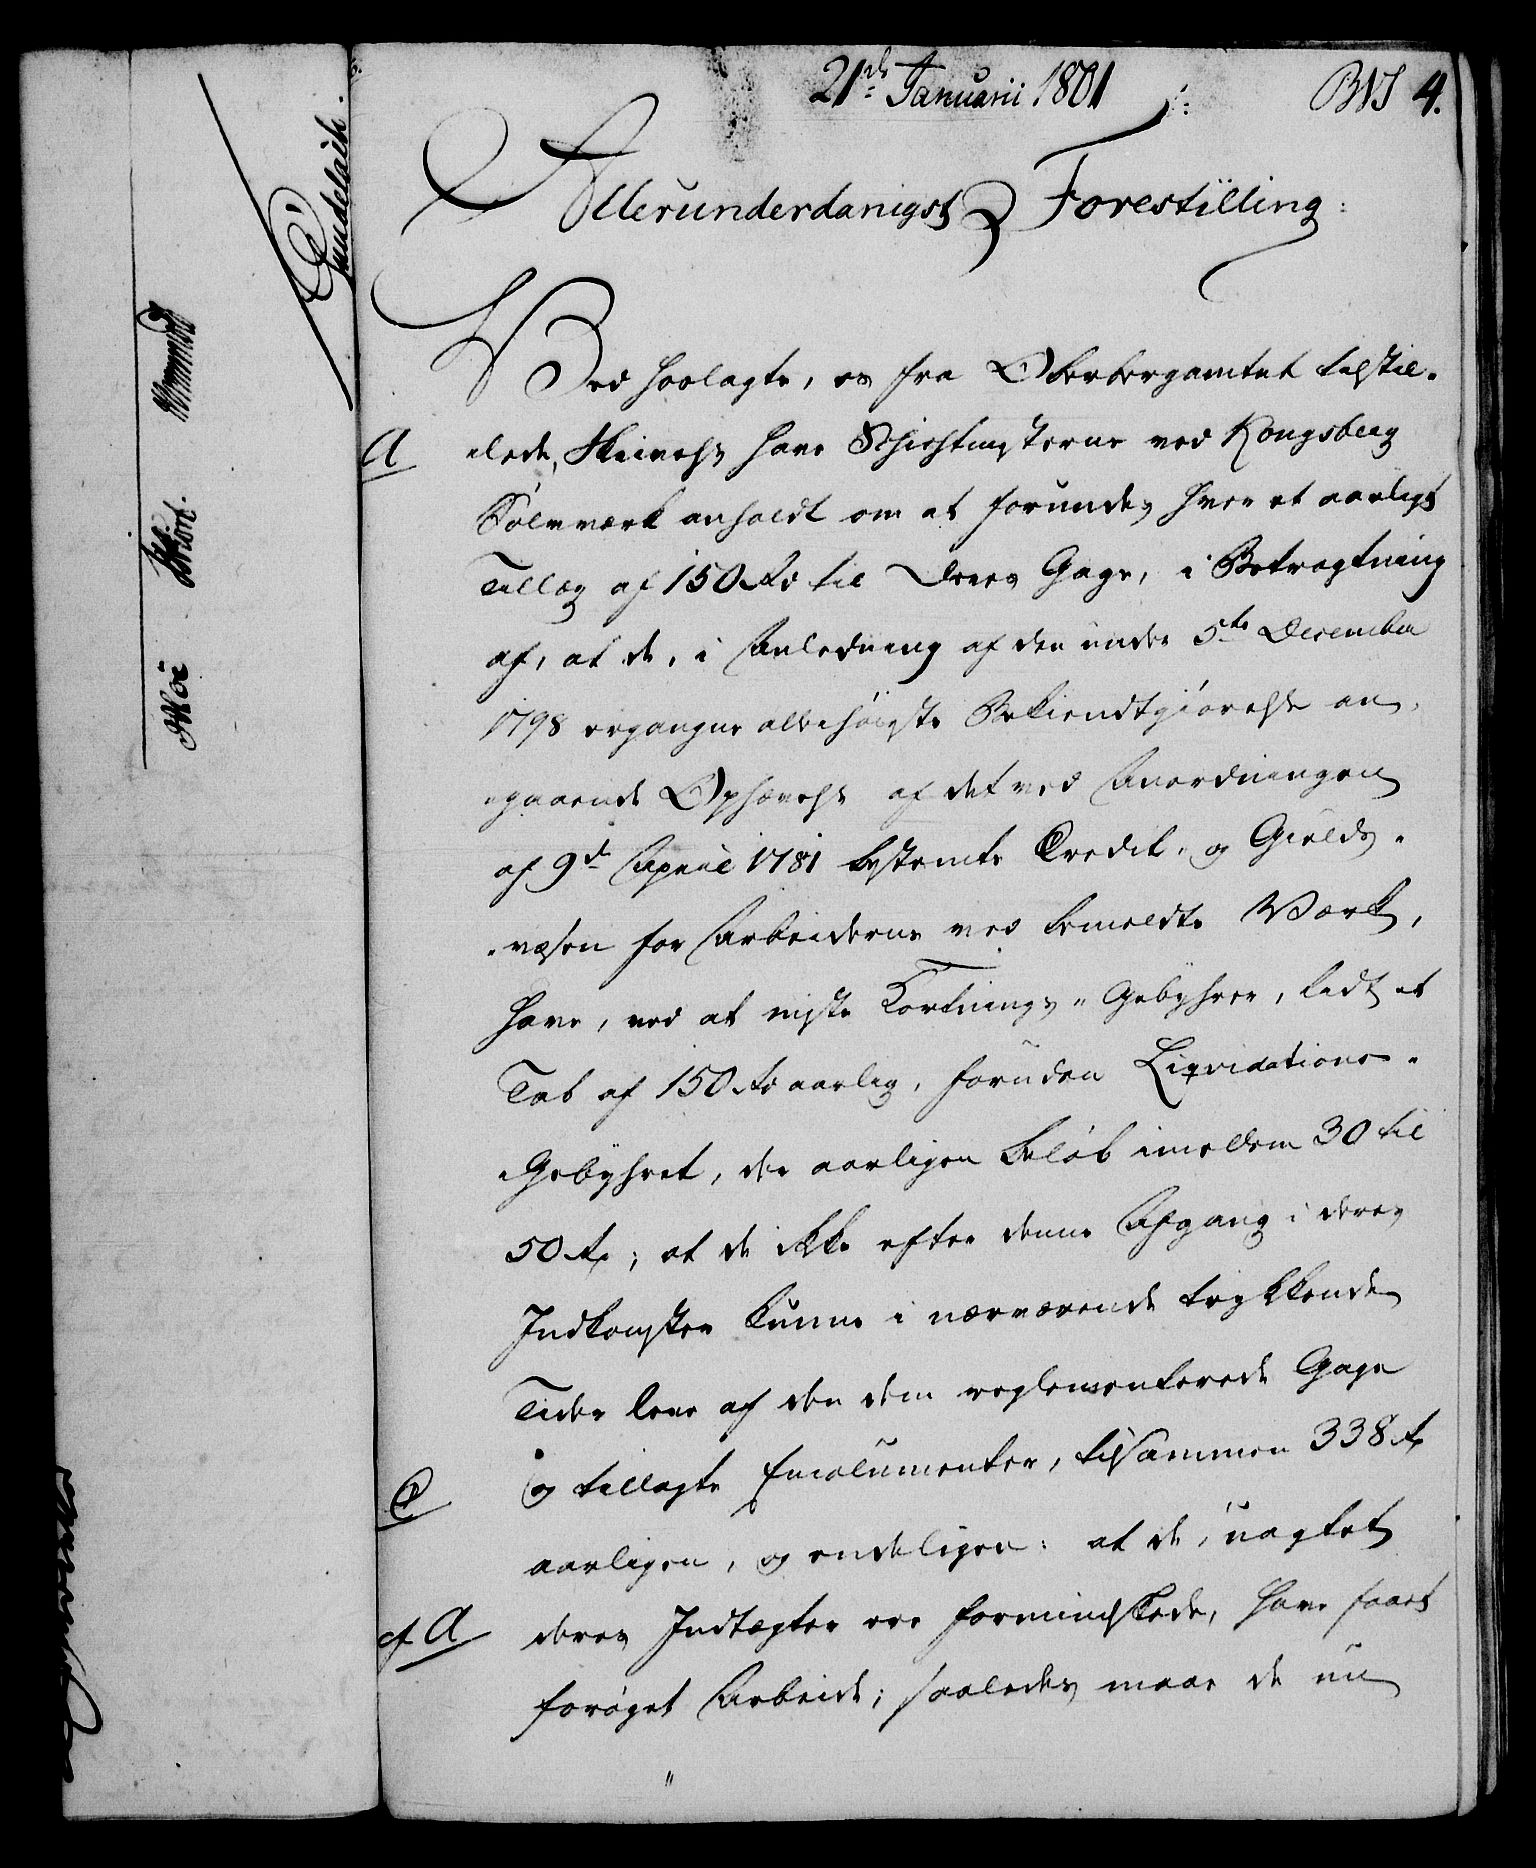 21de Januarii 1801
BWS 4.
Allerunderdanigst Forestilling:
Ved hoslagte, os fra Oberbergamtet tilstil-
A
-lede, Skrivelse have Schichtmesterne ved Kongsberg
Sølvværk anholdt om at forundes hver et aarligt
Tillæg af 150 rd til deres Gage, i Betragtning
af, at de, i Anledning af den under 5te December
1798 ergangne allerhøieste Bekiendtgiørelse an-
-gaaende Ophævelse af det ved Anordningen
af 9de April 1781 bestemte Credit- og Gields-
-væsen for Arbeiderne ved bemeldte Værk,
have, ved at miste Kortnings-Gebyhrer, lidt et
Tab af 150 rd aarlig, foruden Liqvidations-
-Gebyhret, der aarligen beløb imellem 30 til
50 rd; at de ikke efter denne Afgang i deres
Indkomster kunne i nærværende trykkende
Tider leve af den dem reglementerede Gage
og tillagte Emolumenter, tilsammen 338 rd
C
aarligen, og endeligen: at de, uagtet
cf A
deres Indtægter ere formindskede, have faaet
forøget Arbeide; saaledes maae de nu